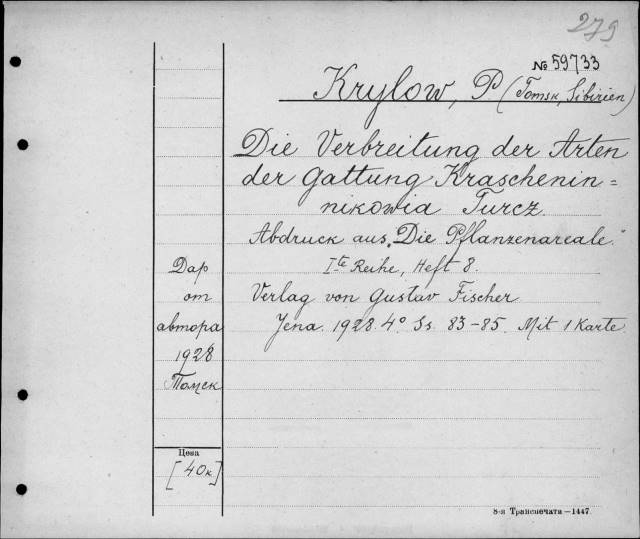 279
№ 59733
Krylow, P. (Tomsk, Sibirien)
Die Verbreitung der Arten
der Gattung Kraschenin=
nikowia Turcz.
Abdruck aus „Die Pflanzenareale“
Iᵗᵉ Reihe, Heft 8.
Verlag von Gustav Fischer
Jena. 1928. 4° Ss. 83-85. Mit 1 Karte.
Дар
от
автора
1928
Томск
Цена
[40к]
8-я Транспечати—1447.